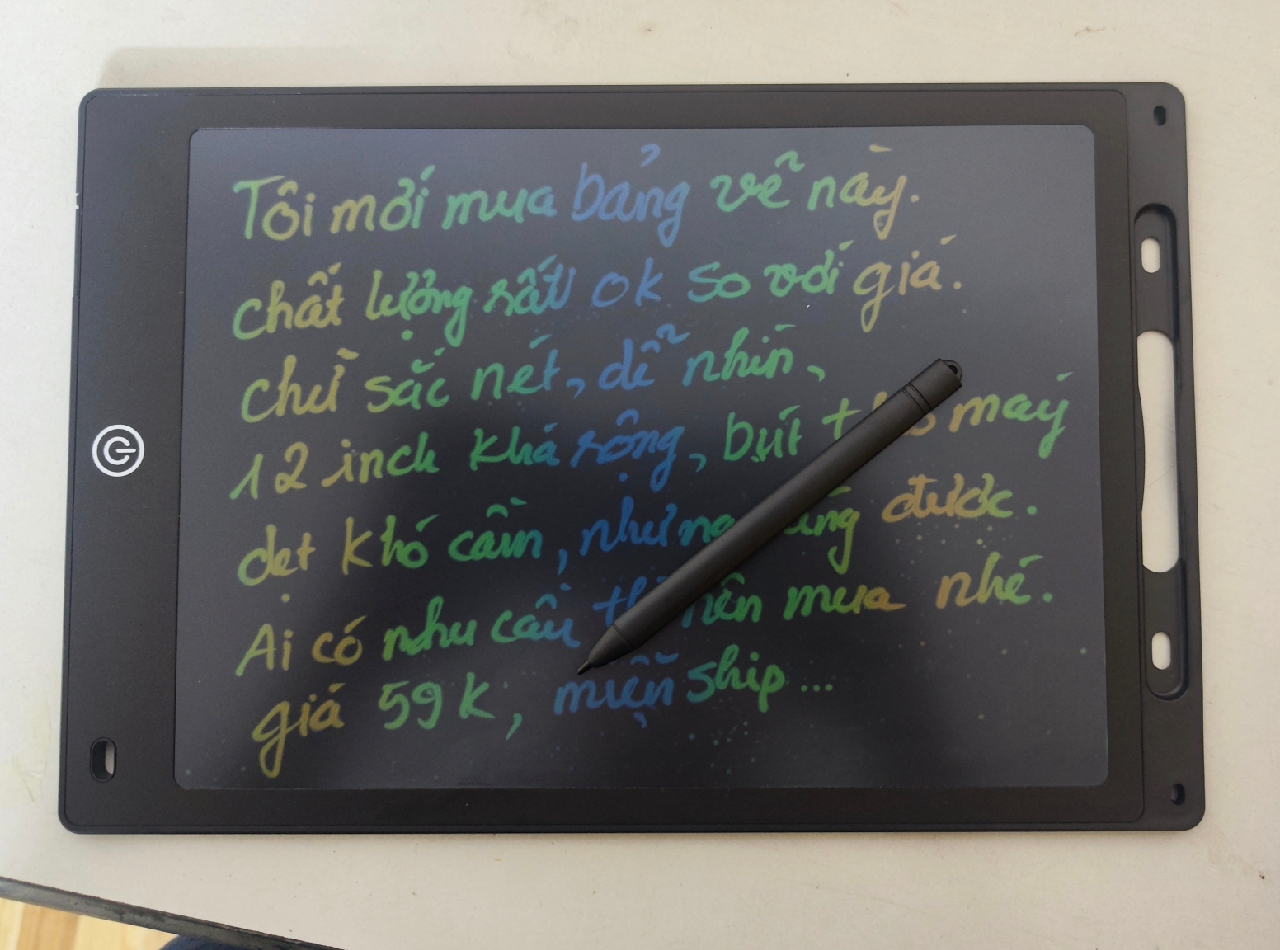 Tôi mới mua bảng vẽ này.
chất lượng rất ok so với giá.
chữ sắc nét, dễ nhìn,
12 inch khá rộng, bút may
dẹt khó cầm, được.
Ai có nhu cầu nên mua nhé.
giá 59K, miễn ship...